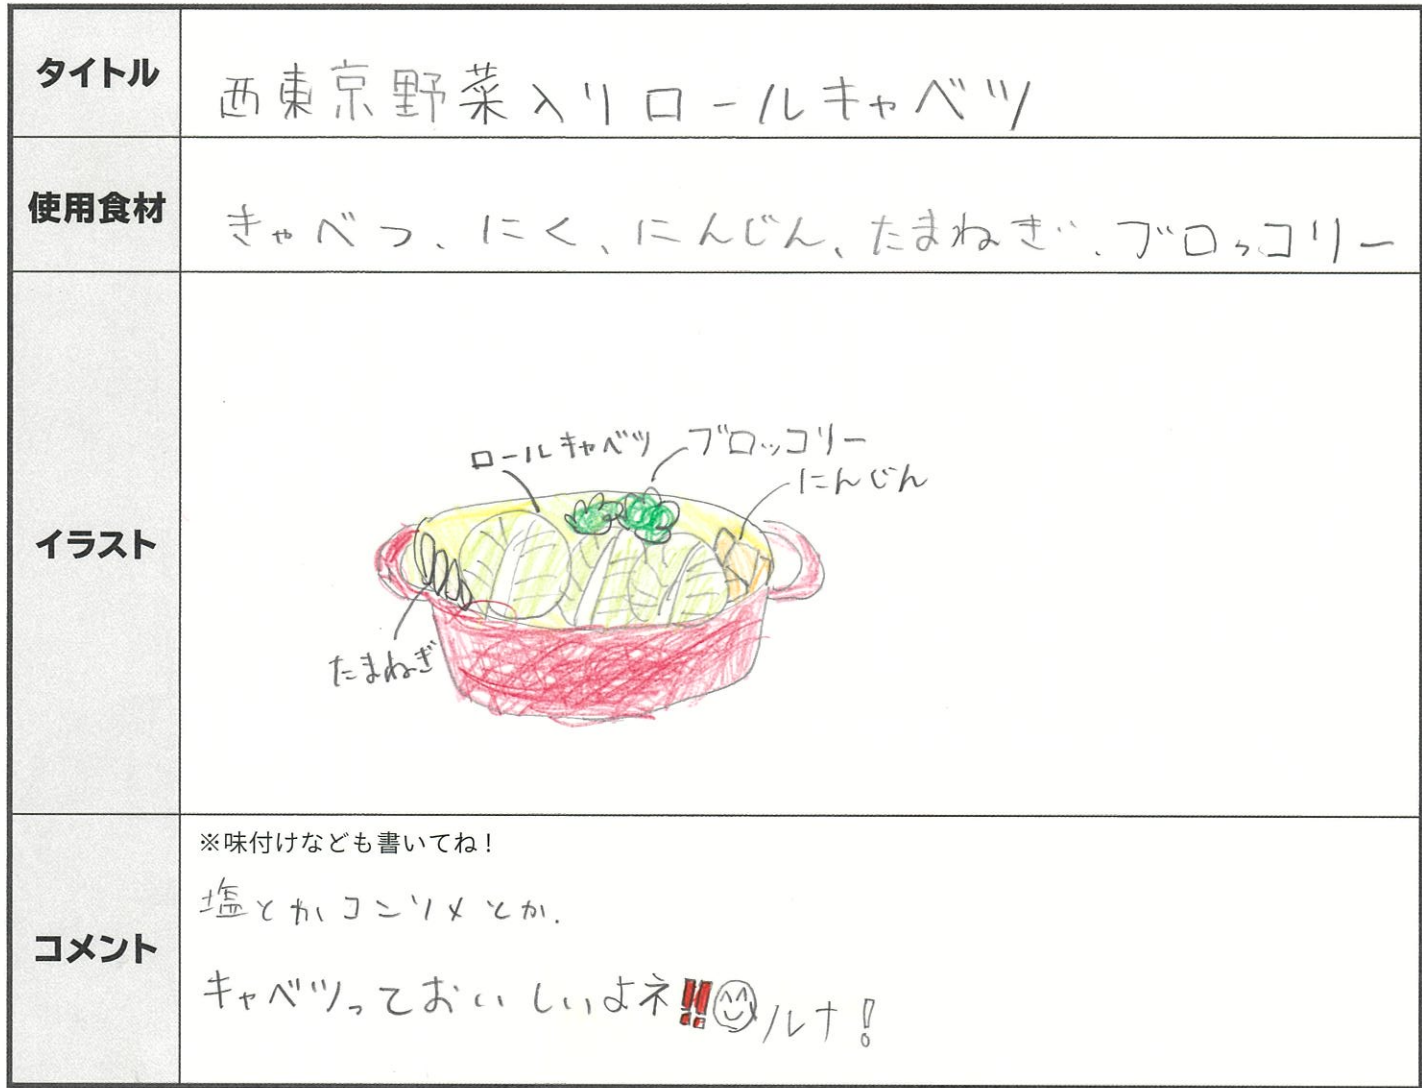 タイトル
西東京野菜入りロールキャベツ
使用食材
きゃべつ、にく、にんじん、たまねぎ、ブロッコリー
イラスト
ロールキャベツ
ブロッコリー
にんじん
たまねぎ
コメント
※味付けなども書いてね！
塩とかコンソメとか.
キャベツっておいしいよネ‼ルナ！